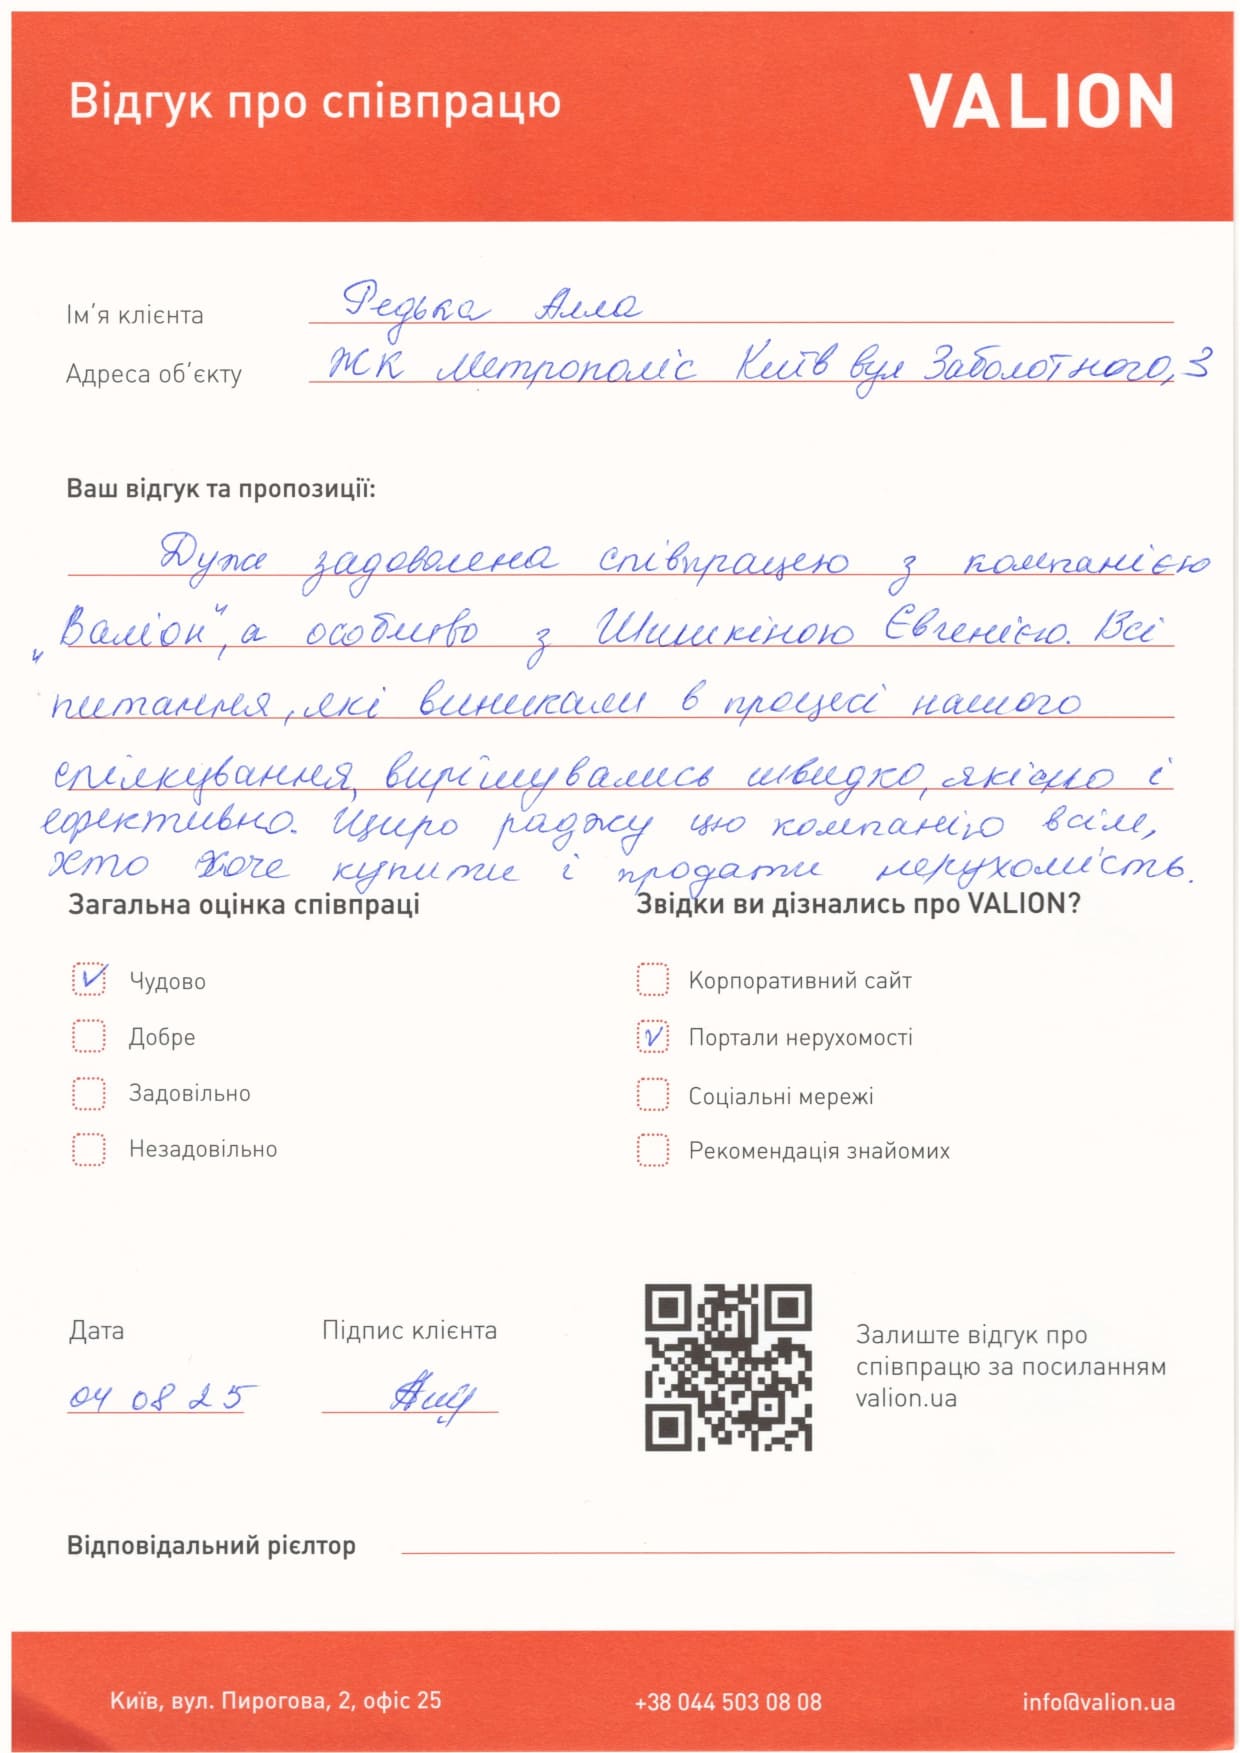 Відгук про співпрацю
VALION
Ім'я клієнта Редька Алла
Адреса об'єкту ЖК Метрополіс Київ вул Заболотного, 3
Ваш відгук та пропозиції:
Дуже задоволена співпрацею з компанією
„Валіон", а особливо з Шишкіною Євгенією. Всі
питання, які виникали в процесі нашого
спілкування, вирішувались швидко, якісно і
ефективно. Щиро раджу цю компанію всім,
хто хоче купити і продати нерухомість.
Загальна оцінка співпраці
Звідки ви дізнались про VALION?
Чудово
Добре
Задовільно
Незадовільно
Корпоративний сайт
Портали нерухомості
Соціальні мережі
Рекомендація знайомих
Дата
04 08 25
Підпис клієнта
Залиште відгук про
співпрацю за посиланням
valion.ua
Відповідальний рієлтор
Київ, вул. Пирогова, 2, офіс 25
+38 044 503 08 08
info@valion.ua